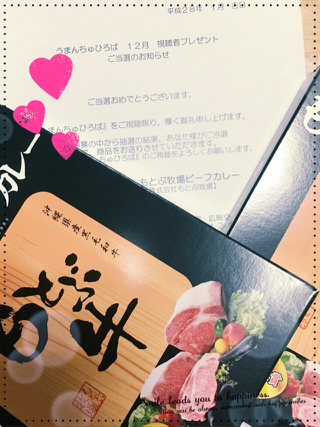 平成28年 1月
うまんちゅひろば 12月 視聴者プレゼント
ご当選のお知らせ
ご当選おめでとうございます。
まんちゅひろば』をご視聴賜り、厚く御礼申し上げます。
の中から抽選の結果、あなた様がご当選
商品をお送りさせていただきます。
ちゅひろば』のご視聴をよろしくお願いします。
もとぶ牧場ビーフカレー
株式会社もとぶ牧場】
カレー
沖縄県産黒毛和牛
もとぶ牛
Smile leads you to happiness.
May you be always surrounded with happy smiles